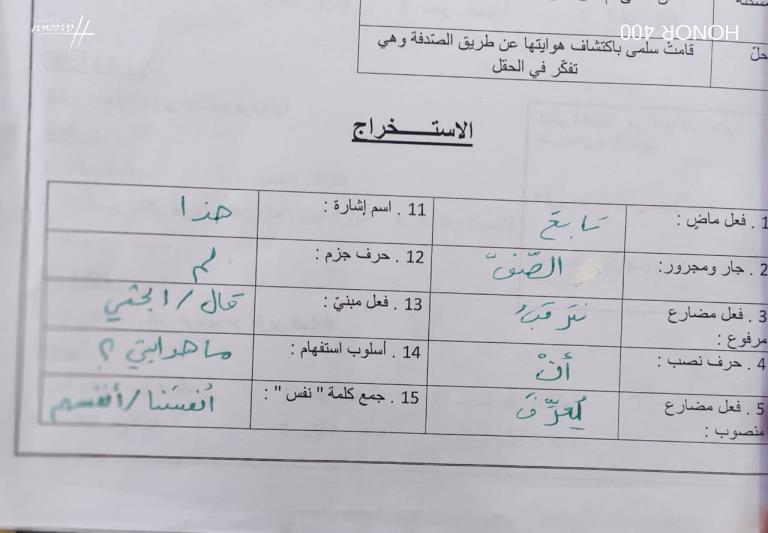 HONOR 400
حلّ
قامتْ سلمى باكتشاف هوايتها عن طريق الصّدفة وهي
تفكّر في الحقل
الاستـــخراج
1 . فعل ماضٍ :
تابعَ
11 . اسم إشارة :
هذا
2 . جار ومجرور:
الصّف
12 . حرف جزم :
لم
3 . فعل مضارع
مرفوع :
نترقبُ
13 . فعل مبنيّ :
قال /
4 . حرف نصب :
أنْ
14 . أسلوب استفهام :
ما هوايتي ؟
5 . فعل مضارع
منصوب :
يُعرِّفَ
15 . جمع كلمة " نفس " :
أنفسَنا/أنفسهم